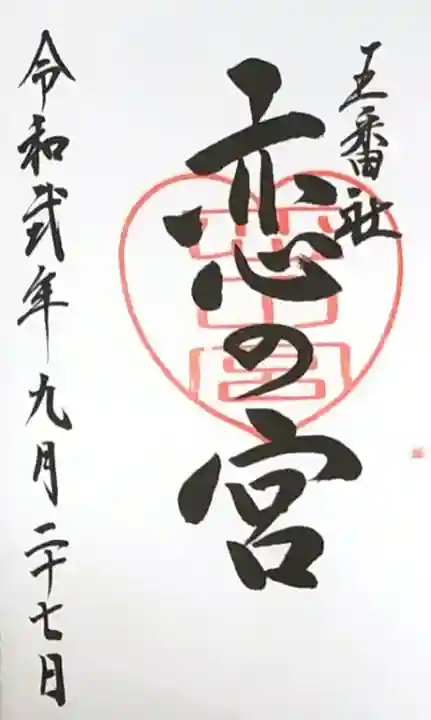 五番社
恋の宮
令和弐年九月二十七日